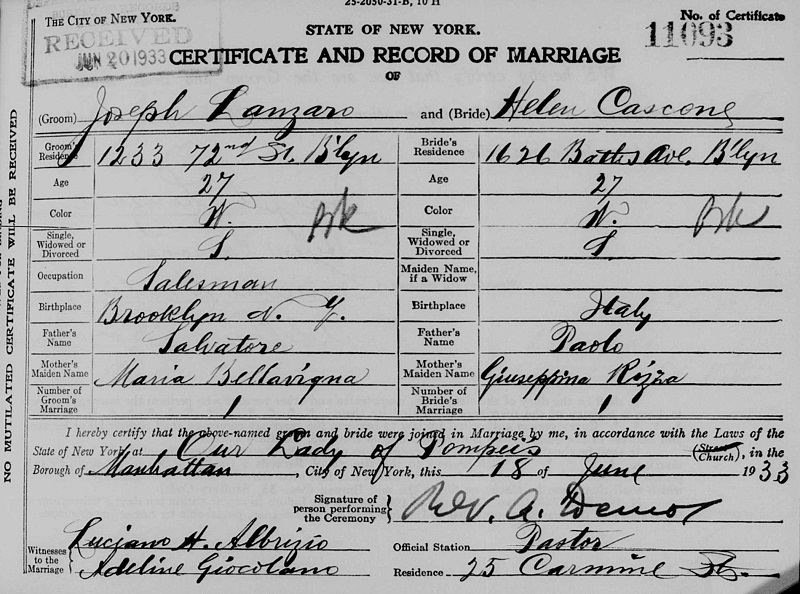 25-2050-31-B, 10 H
THE CITY OF NEW YORK.
RECEIVED
JUN 20 1933
STATE OF NEW YORK.
No. of Certificate
11093
CERTIFICATE AND RECORD OF MARRIAGE
OF
(Groom) Joseph Lanzaro and (Bride) Helen Cascone
Groom's Residence 1233 72nd St. B'lyn Bride's Residence 1626 Bath Ave. B'lyn
Age 27 Age 27
Color W. Brk Color W. Brk
Single, Widowed or Divorced S. Single, Widowed or Divorced S.
Occupation Salesman Maiden Name, if a Widow
Birthplace Brooklyn N. Y. Birthplace Italy
Father's Name Salvatore Father's Name Paolo
Mother's Maiden Name Maria Bellavigna Mother's Maiden Name Giuseppina
Number of Groom's Marriage 1 Number of Bride's Marriage 1
I hereby certify that the above-named groom and bride were joined in Marriage by me, in accordance with the Laws of the
State of New York, at Our Lady of Pompeis (Street Church), in the
Borough of Manhattan, City of New York, this 18 of June 1933
Signature of person performing the Ceremony Rev. A.
Witnesses to the Marriage Luciano H. Albrizio Official Station Pastor
Adeline Residence 25 Carmine St.
NO MUTILATED CERTIFICATE WILL BE RECEIVED